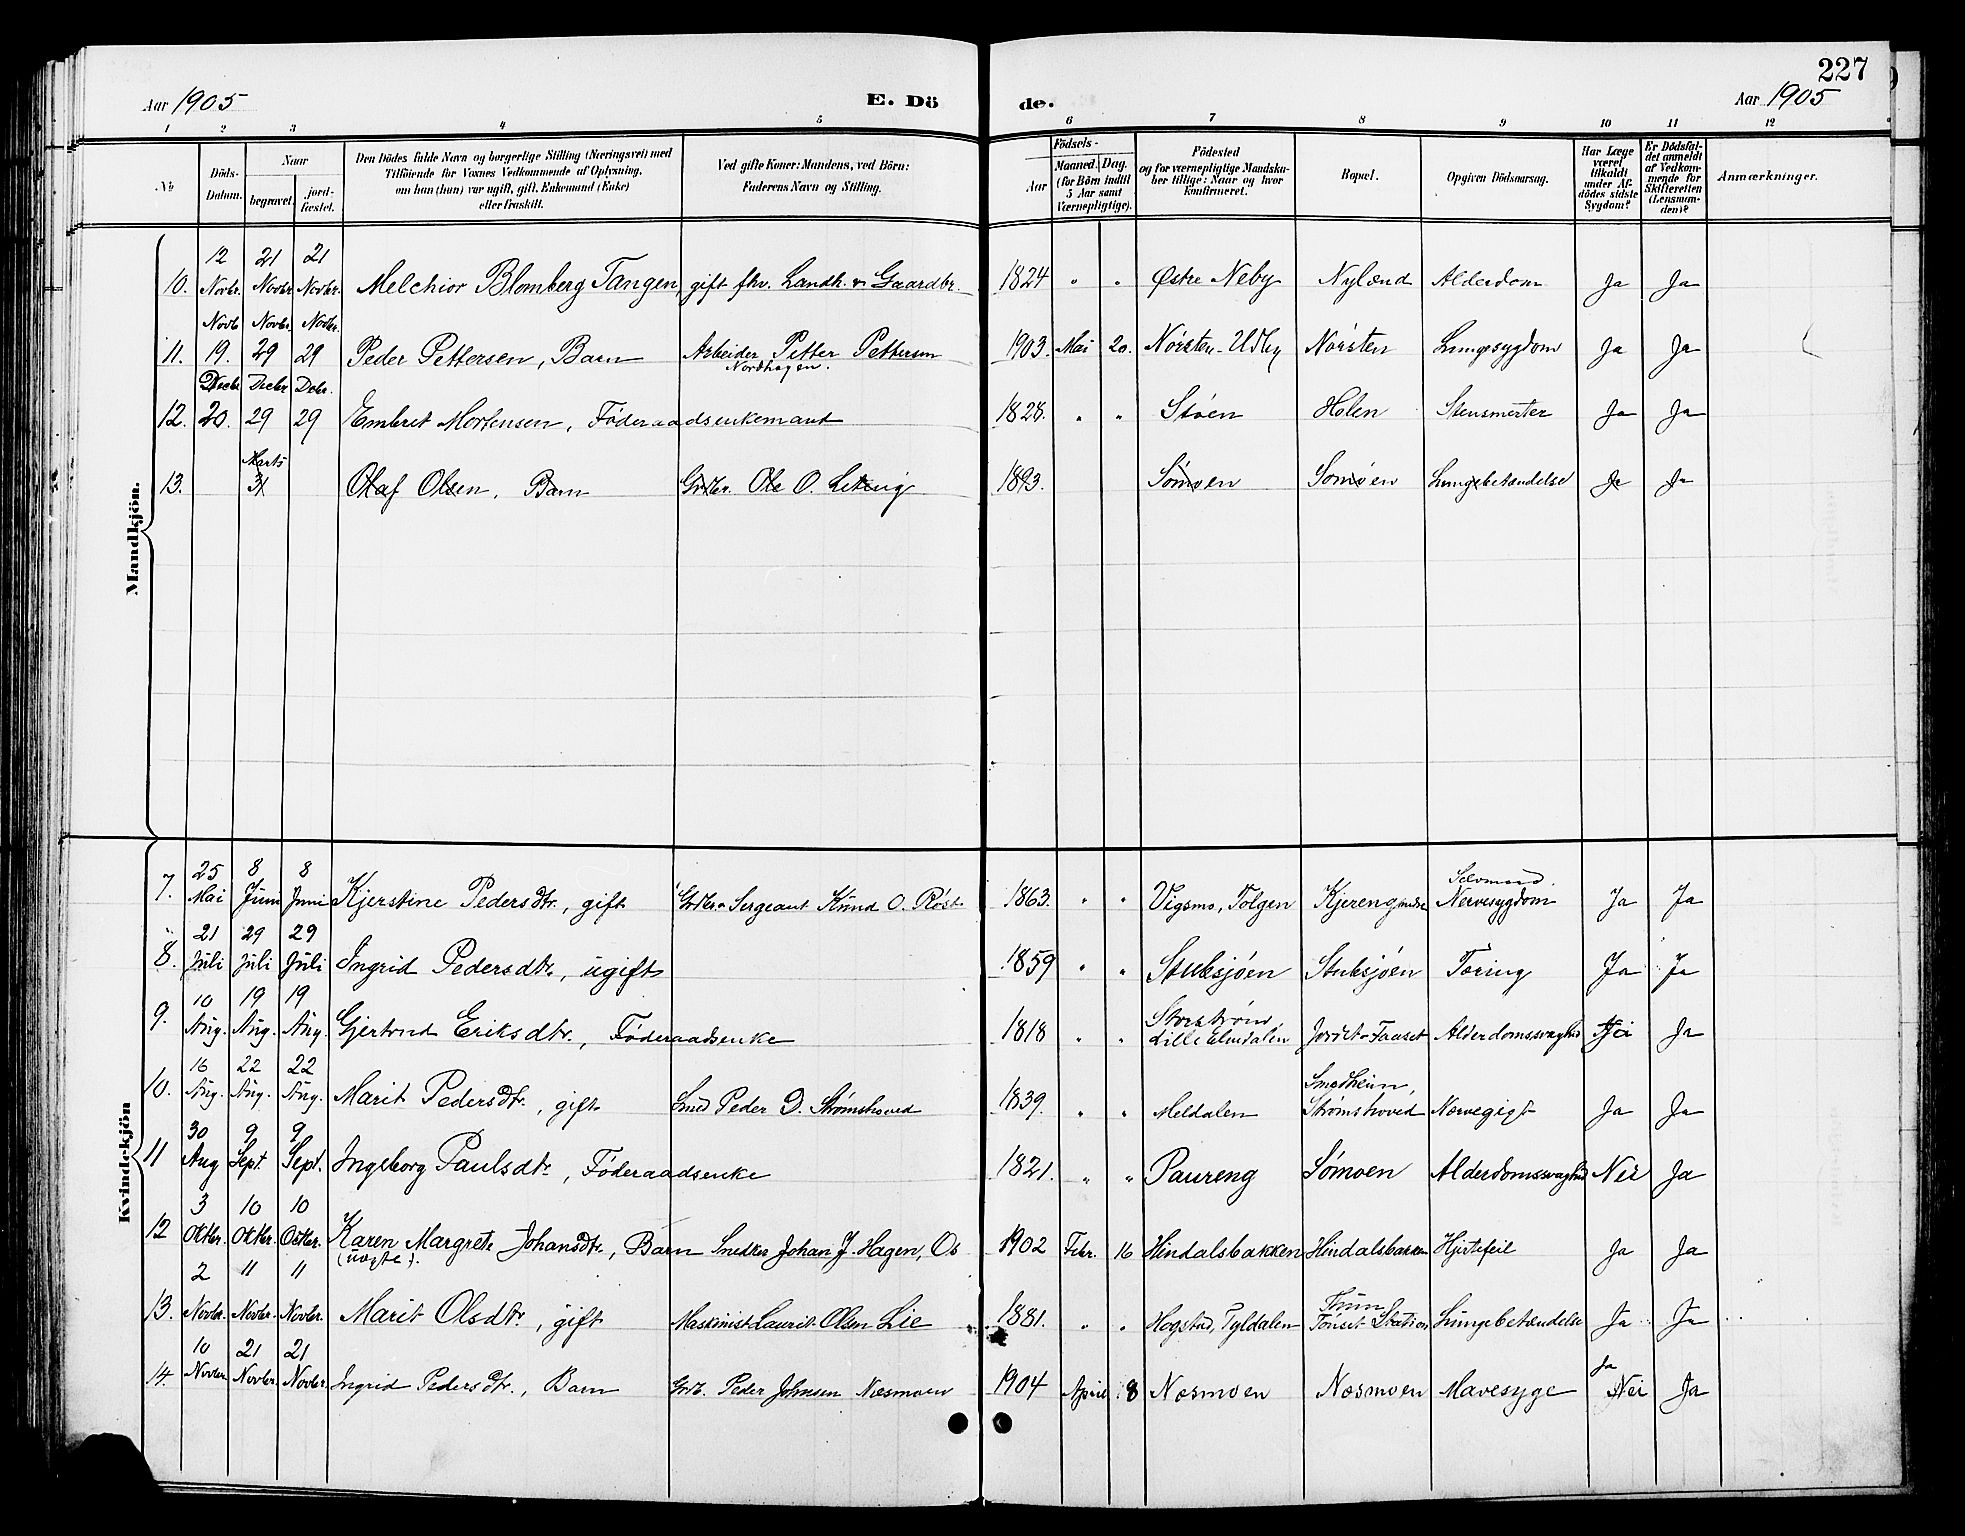 227
Aar 1905 E. Dö de. Aar 1905
1 2 3 4 5 6 7 8 9 10 11 12
No Döds-Datum. Naar begravet. jordfæstet. Den Dödes fulde Navn og borgerlige Stilling (Næringsvei) med Tilföiende for Voxnes Vedkommende af Oplysning, om han (hun) var ugift, gift, Enkemand (Enke) eller fraskilt. Ved gifte Koner: Mandens, ved Börn: Faderens Navn og Stilling. Födsels- Aar Maaned. Dag. (for Börn indtil 5 Aar samt Værnepligtige). Födested og for værnepligtige Mandskaber tillige: Naar og hvor konfirmeret. Bopæl. Opgiven Dödsaarsag. Har Læge været tilkaldt under Afdödes sidste Sygdom? Er Dödsfaldet anmeldt af Vedkommende for Skifteretten (Lensmanden)? Anmærkninger.
Mandkjön.
10. 12 Novbr. 21 Novbr. 21 Novbr. Melchior Blomberg Tangen, gift fhv. Landh. & Gaardbr. 1824 " " Østre Neby Nylænd Alderdom Ja Ja
11. Novb. 19. Novbr. 29 Novbr. 29 Peder Pettersen, Barn Arbeider Petter Pettersen Nordhagen. 1903. Mai 20. Nórsten-Udby Nórsten Lungesygdom Ja Ja
12. Decbr. 20. Decbr 29 Debr. 29 Embret Mortensen, Føderaadsenkemand 1828. " " Støen Holen Stensmerter Ja Ja
13. Marts 31 Olaf Olsen, Barn Grdbr. Ole O. 1893. Sómoen Somóen Lungebetændelse Ja Ja
Kvindekjön
7. 25 Mai 8 Juni 8 Juni Kjerstine Pedersdtr., gift Grdbr. Sergeant Knud O. Røst 1863. " " Vigsmo, Tolgen Kjerengmoen Selvmord. Nervesygdom Ja Ja
8. 21 Juli 29 Juli 29 Juli Ingrid Pedersdtr., ugift 1859 " " Stubsjøen Stubsjøen Tæring Ja Ja
9. 10 Aug. 19 Aug. 19 Aug. Gjertrud Eriksdtr., Føderaadsenke 1818 " " Storstrøm Lille Elvedalen Jordet-Fauset Alderdomssvaghed Ja
10. 16 Aug. 22 Aug. 22 Aug. Marit Pedersdtr., gift Smed Peder D. Strømshoved 1839. " " Meldalen Smedheim, Strømshoved Nervegigt Ja Ja
11 30 Aug 9 Sept. 9 Sept. Ingeborg Paulsdtr., Føderaadsenke 1821. " " Paureng Sómoen Alderdomssvaghed Nei Ja
12 3 Oktbr. 10 Oktbr. 10 Octbr. Karen Margrete Johansdtr., Barn (uægte). Snedker Johan J. Hagen, Os 1902 Febr. 16 Hindalsbakken Hindalsbakken Hjertefeil Ja Ja
13. 2 Novbr. 11 Novbr. 11 Novbr. Marit Olsdtr., gift Maskinist Laurit Olsen Lie 1881. " " Hogstad, Tyldalen Thun Tónset Station Lungebetændelse Ja Ja
14. 10 Novbr. 21 Novbr. 21 Novbr. Ingrid Pedersdtr., Barn Grdb. Peder Johnsen Næsmoen 1904 April 18 Næsmoen Næsmoen Mavesyge Ja Nei Ja